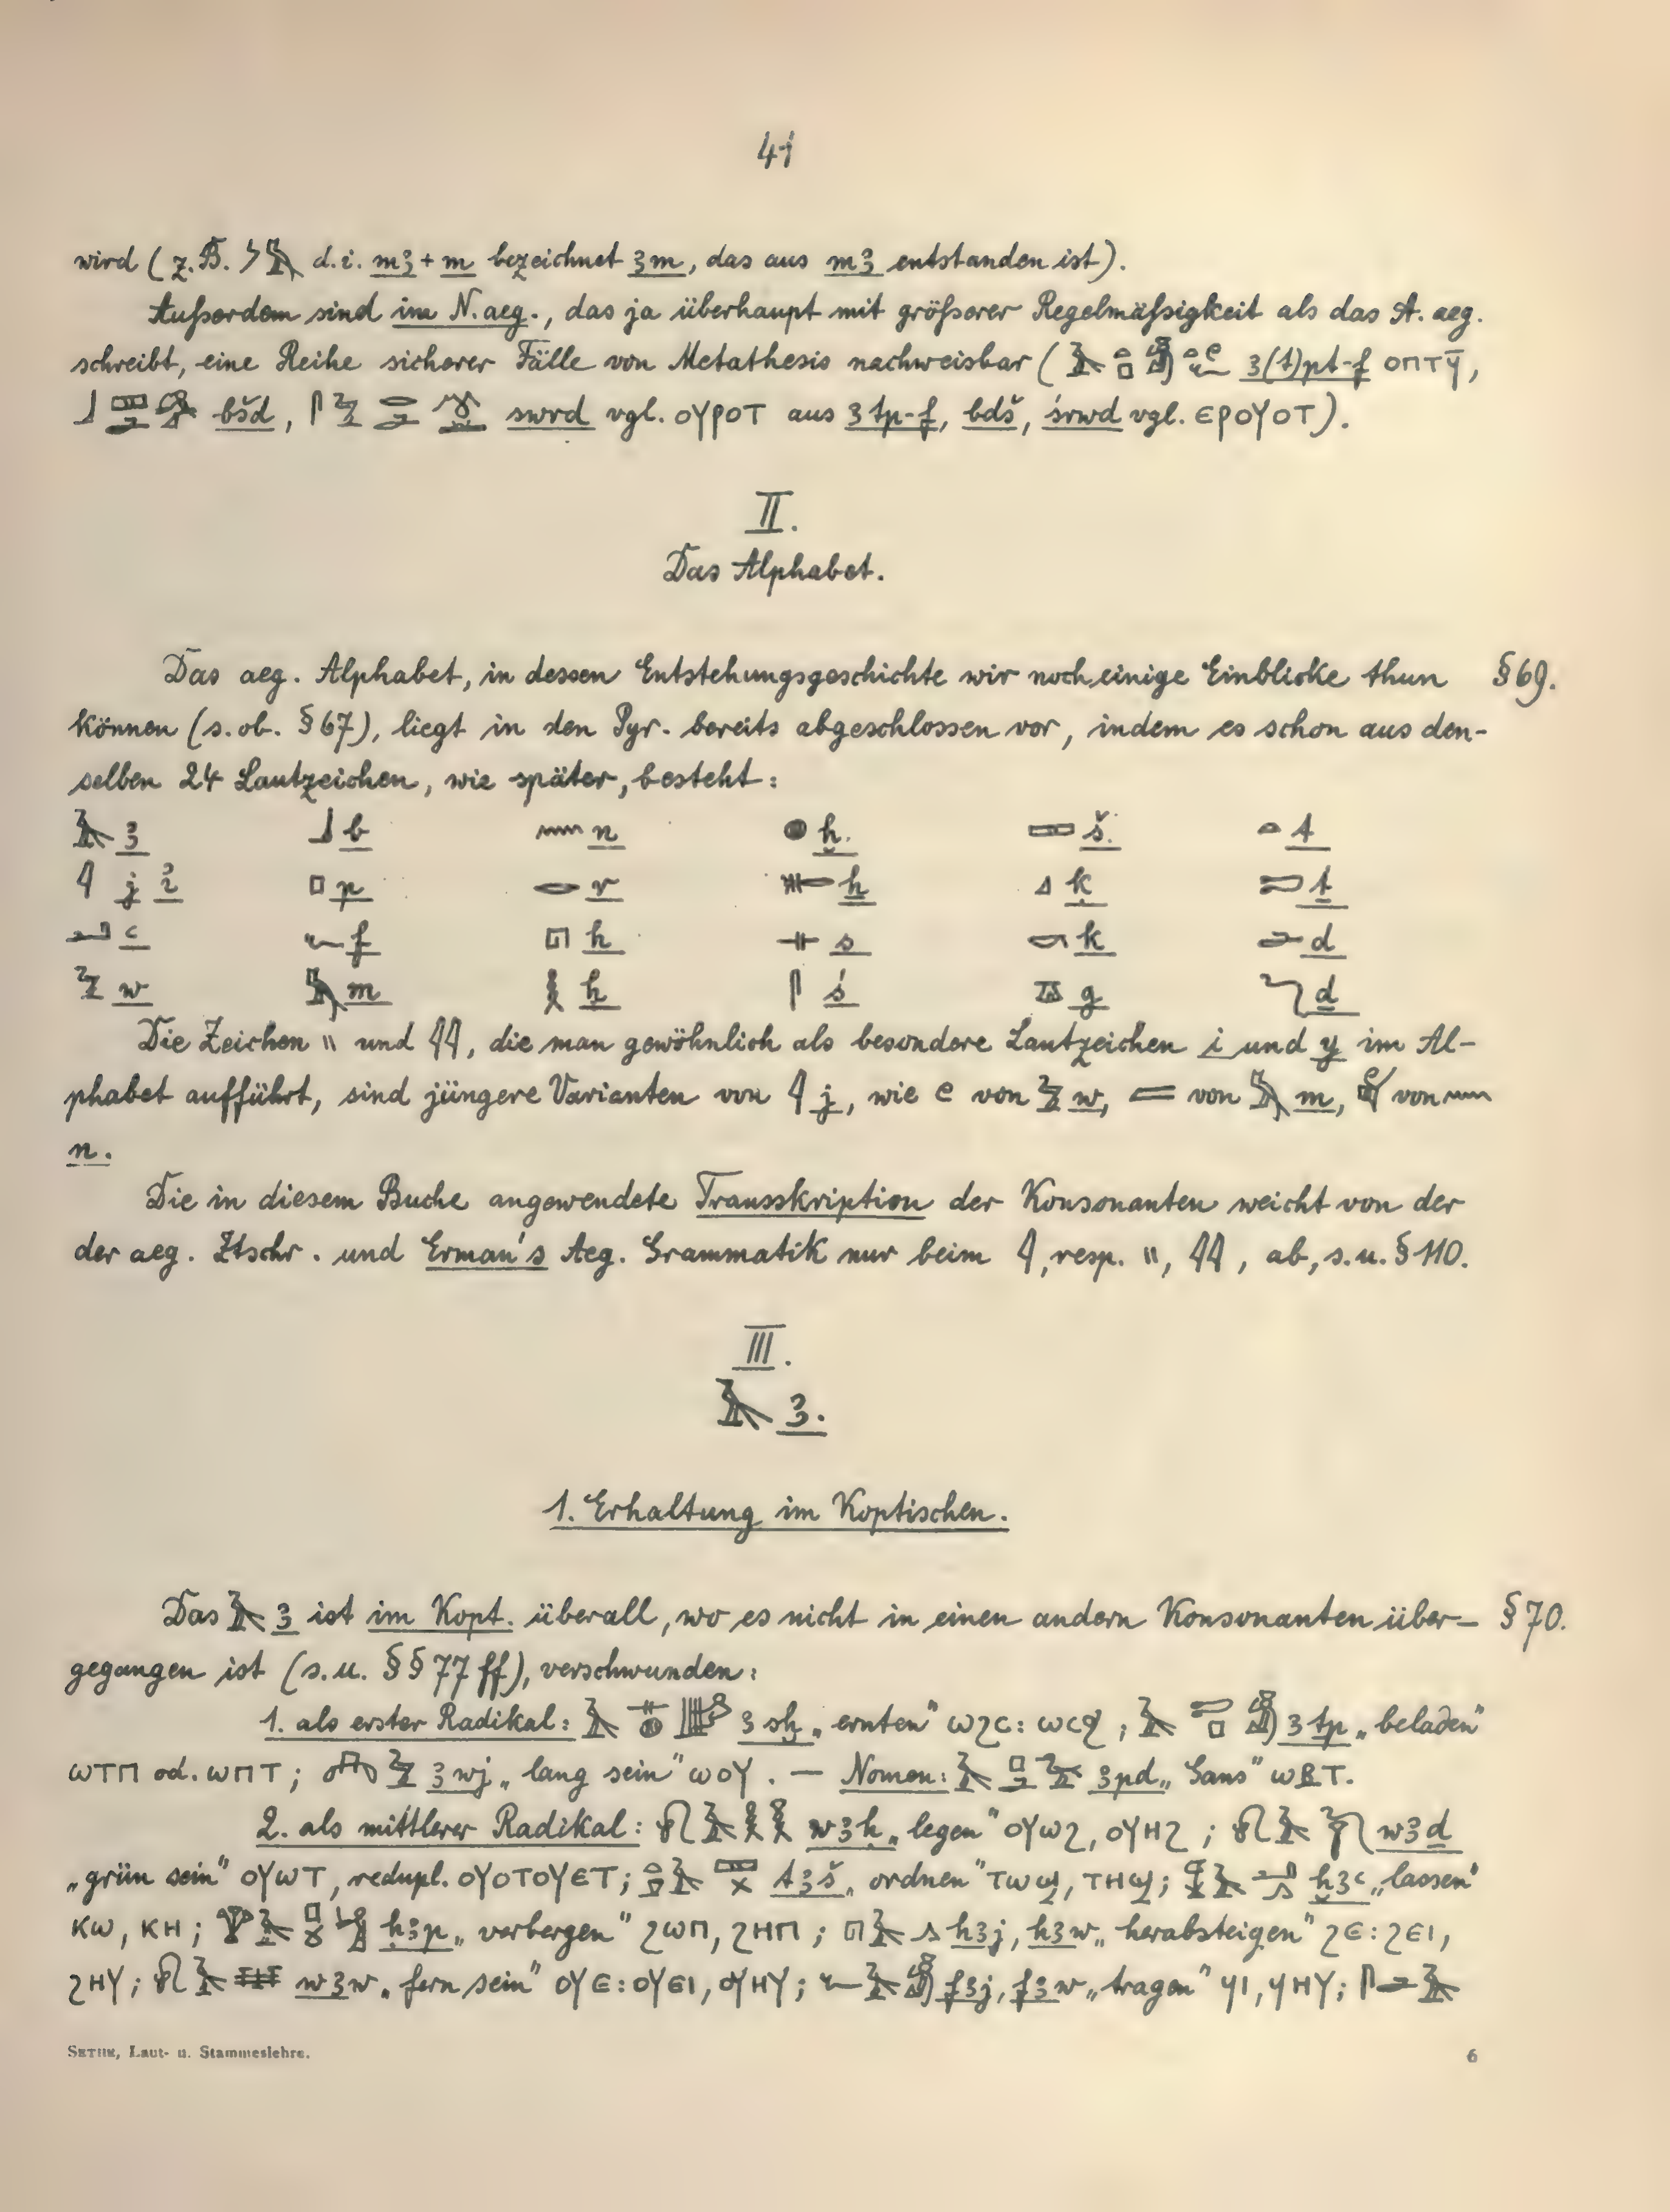 41
wird (z. B. 𓌳𓅓 d. i. mꜣ + m bezeichnet ꜣm, das aus mꜣ entstanden ist).
Außerdem sind im N. aeg., das ja überhaupt mit größerer Regelmäßigkeit als das A. aeg.
schreibt, eine Reihe sicherer Fälle von Metathesis nachweisbar (𓄿 ꜣ(t)pt-f ⲟⲡⲧϥ̄,
bšd, swrd vgl. ⲟⲩⲣⲟⲧ aus ꜣtp-f, bdš, śrwd vgl. ⲉⲣⲟⲩⲟⲧ).
II.
Das Alphabet.
Das aeg. Alphabet, in dessen Entstehungsgeschichte wir noch einige Einblicke thun § 69.
können (s. ob. § 67), liegt in den Pyr. bereits abgeschlossen vor, indem es schon aus den-
selben 24 Lautzeichen, wie später, besteht:
𓄿 ꜣ 𓃀 b 𓈖 n 𓐍 ḫ. 𓈙 š. 𓏏 t
𓇋 j ꞽ 𓊪 p 𓂋 r 𓄡 ẖ 𓈎 ḳ 𓍿 ṯ
𓂝 ꜥ 𓆑 f 𓉔 h 𓊃 s 𓎡 k 𓂧 d
𓅱 w 𓅓 m 𓎛 ḥ 𓋴 ś 𓎼 g 𓆓 ḏ
Die Zeichen 𓏭 und 𓇌, die man gewöhnlich als besondere Lautzeichen i und y im Al-
phabet aufführt, sind jüngere Varianten von 𓇋 j, wie 𓏲 von 𓅱 w, 𓐝 von 𓅓 m, 𓋔 von 𓈖
n.
Die in diesem Buche angewendete Transskription der Konsonanten weicht von der
der aeg. Ztschr. und Erman's Aeg. Grammatik nur beim 𓇋, resp. 𓏭, 𓇌, ab, s. u. § 110.
III.
𓄿 ꜣ.
1. Erhaltung im Koptischen.
Das 𓄿 ꜣ ist im Kopt. überall, wo es nicht in einen andern Konsonanten über- § 70.
gegangen ist (s. u. §§ 77 ff), verschwunden:
1. als erster Radikal: ꜣsḫ „ernten“ ⲱϩⲥ: ⲱⲥϧ; ꜣtp „beladen“
ⲱⲧⲡ od. ⲱⲡⲧ; ꜣwj „lang sein“ ⲱⲟⲩ. — Nomen: ꜣpd „Gans“ ⲱⲃⲧ.
2. als mittlerer Radikal: wꜣḥ „legen“ ⲟⲩⲱϩ, ⲟⲩⲏϩ; wꜣḏ
„grün sein“ ⲟⲩⲱⲧ, redupl. ⲟⲩⲟⲧⲟⲩⲉⲧ; tꜣš „ordnen“ ⲧⲱϣ, ⲧⲏϣ; ḫꜣꜥ „lassen“
ⲕⲱ, ⲕⲏ; ḥꜣp „verbergen“ ϩⲱⲡ, ϩⲏⲡ; hꜣj, hꜣw „herabsteigen“ ϩⲉ: ϩⲉⲓ,
ϩⲏⲩ; wꜣw „fern sein“ ⲟⲩⲉ: ⲟⲩⲉⲓ, ⲟⲩⲏⲩ; fꜣj, fꜣw „tragen“ ϥⲓ, ϥⲏⲩ; 𓋴𓂧𓄿
SETHE, Laut- u. Stammeslehre. 6